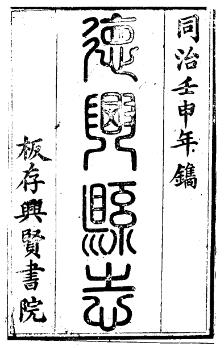 同治壬申年鐫
德興縣志
板存興賢書院